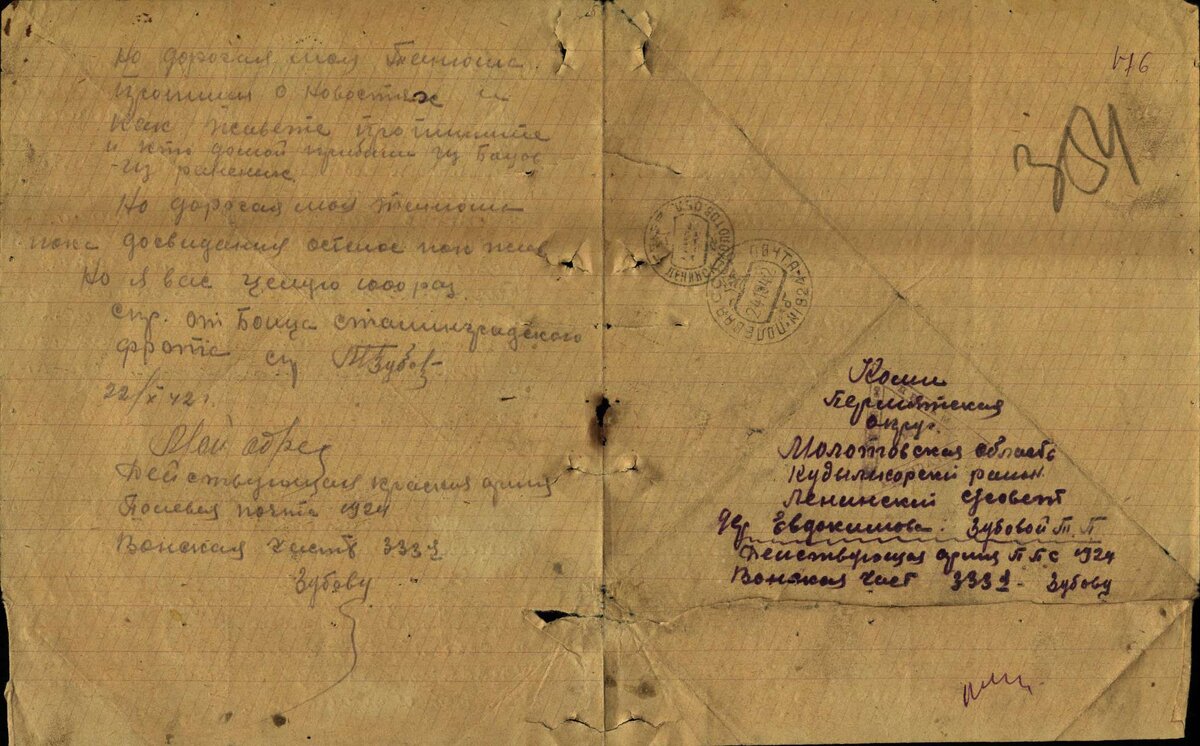 Но дорогая моя Танюша
пропиши о новостях и
как живете пропишите
и кто домой прибыли из Бойцов
из раненых
Но дорогая моя Танюша
пока досвидания остаюс пок жив
Но я вас целую 1000 раз
от Бойца сталинградского
фронта Зубов
22/X 42 г.
Мой адрес
Действующая красная армия
Полевая почта 1924
Вонская часть 3331
Зубову
176
301
ПОЛЕВАЯ ПОЧТА № 1924
24 10 42
Коми
Пермятская
округ.
Молотовская область
Кудымкорский район
Ленинский с/совет
дер Евдокимова Зубовой Т. П
Действующая армия ППС 1924
Вонская част 3331 Зубову